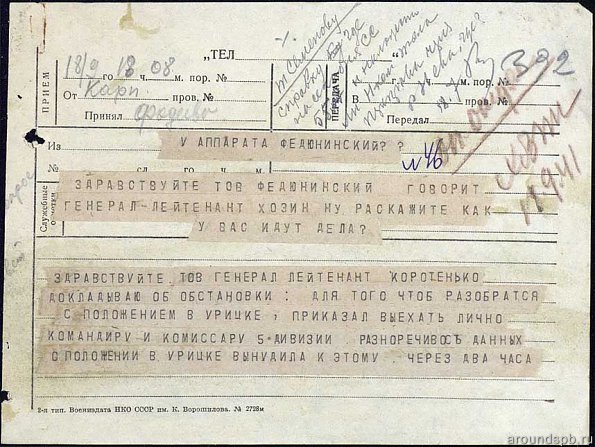 „ТЕЛ
18/9 18 ч. 08 м. пор. №
От Карп. пров. №
Принял
ПРИЕМ
ПЕРЕДАЧА
го ч. м. пор. № 392
пров. №
Передал
т. Семенову
справку
Из У АППАРАТА ФЕДЮНИНСКИЙ? ?
№ сл. го ч. м.
№46
18 9 41
Служебные отметки
ЗДРАВСТВУЙТЕ ТОВ ФЕДЮНИНСКИЙ ГОВОРИТ
ГЕНЕРАЛ-ЛЕЙТЕНАНТ ХОЗИН НУ РАСКАЖИТЕ КАК
У ВАС ИДУТ ДЕЛА?
ЗДРАВСТВУЙТЕ ТОВ ГЕНЕРАЛ ЛЕЙТЕНАНТ КОРОТЕНЬКО
ДОКЛАДЫВАЮ ОБ ОБСТАНОВКИ : ДЛЯ ТОГО ЧТОБ РАЗОБРАТСЯ
С ПОЛОЖЕНИЕМ В УРИЦКЕ, ПРИКАЗАЛ ВЫЕХАТЬ ЛИЧНО
КОМАНДИРУ И КОМИССАРУ 5 ДИВИЗИИ . РАЗНОРЕЧИВОСЪ ДАННЫХ
О ПОЛОЖЕНИИ В УРИЦКЕ ВЫНУДИЛА К ЭТОМУ . ЧЕРЕЗ ДВА ЧАСА
2-я тип. Воениздата НКО СССР им. К. Ворошилова. № 2728м
aroundspb.ru